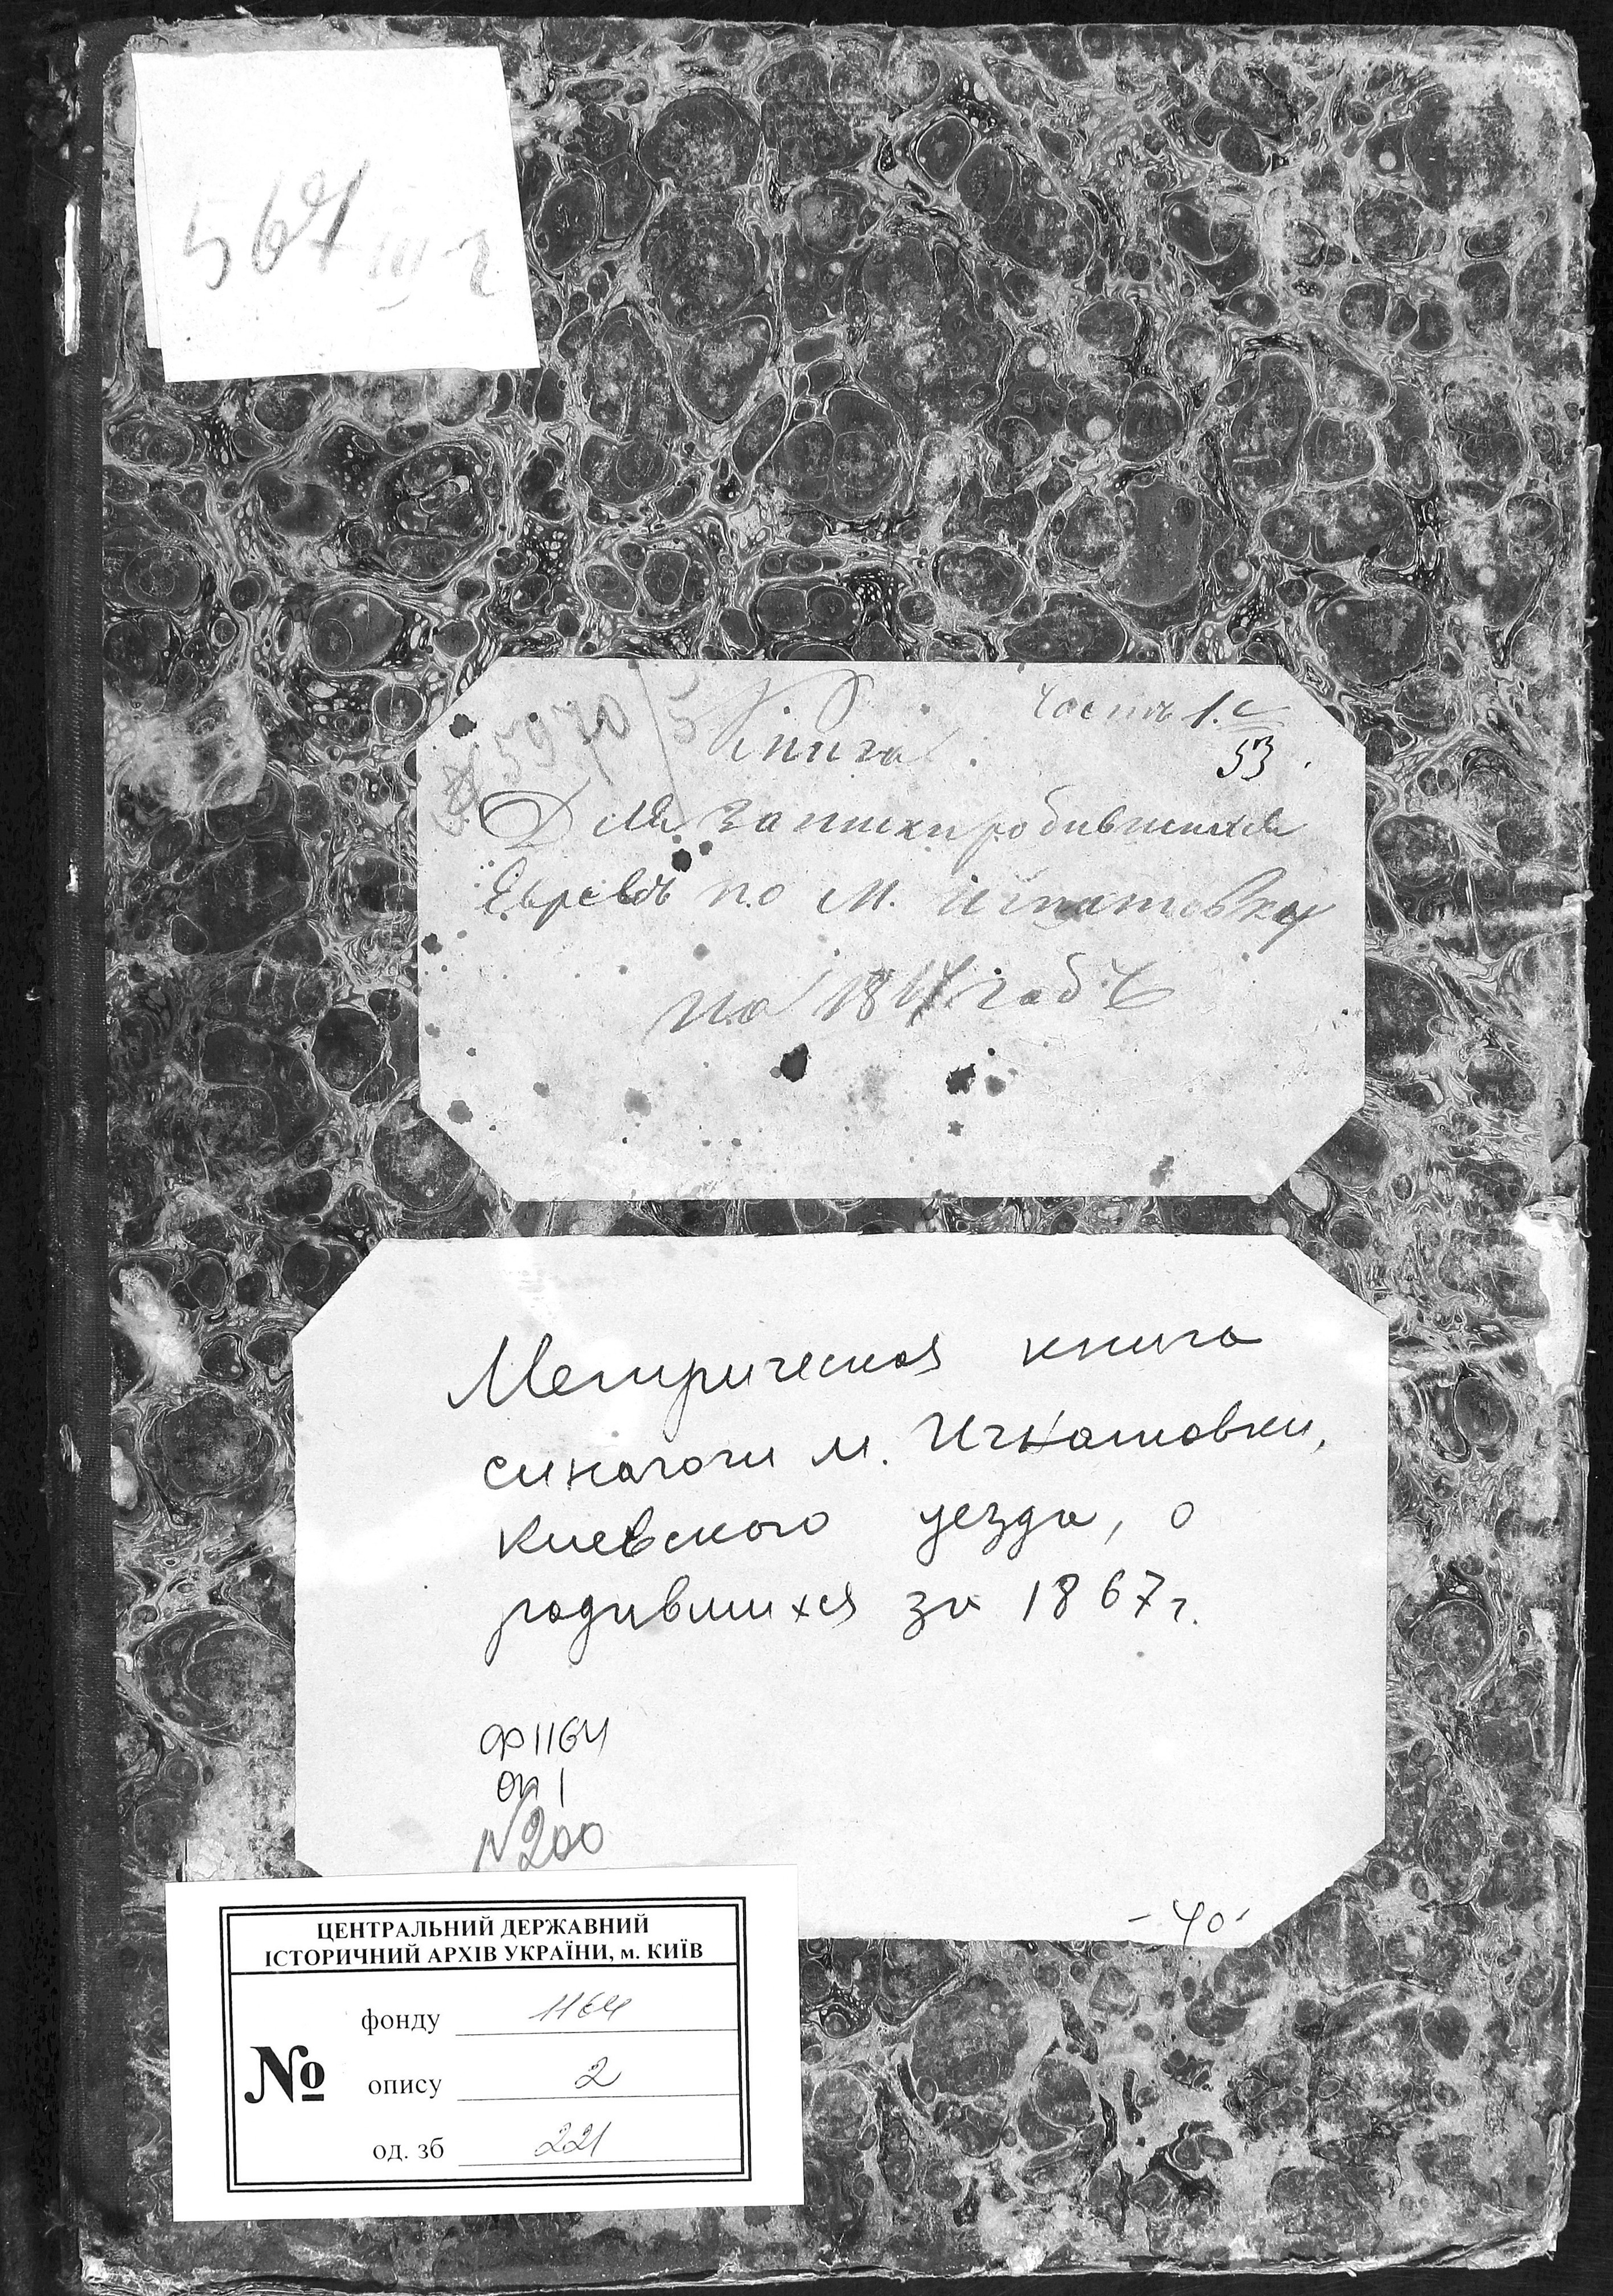 Часть 1.
53
5970/5
Книга
Для записки родившихся
Евреевъ по м. Игнатовку
на годъ
Метрическая книга
синагоги м. Игнатовки,
Киевского уезда, о
родившихся за 1867 г.
Ф 1164
оп 1
№ 200
- 40 -
ЦЕНТРАЛЬНИЙ ДЕРЖАВНИЙ
ІСТОРИЧНИЙ АРХІВ УКРАЇНИ, м. КИЇВ
№
фонду 1164
опису 2
од. зб 221